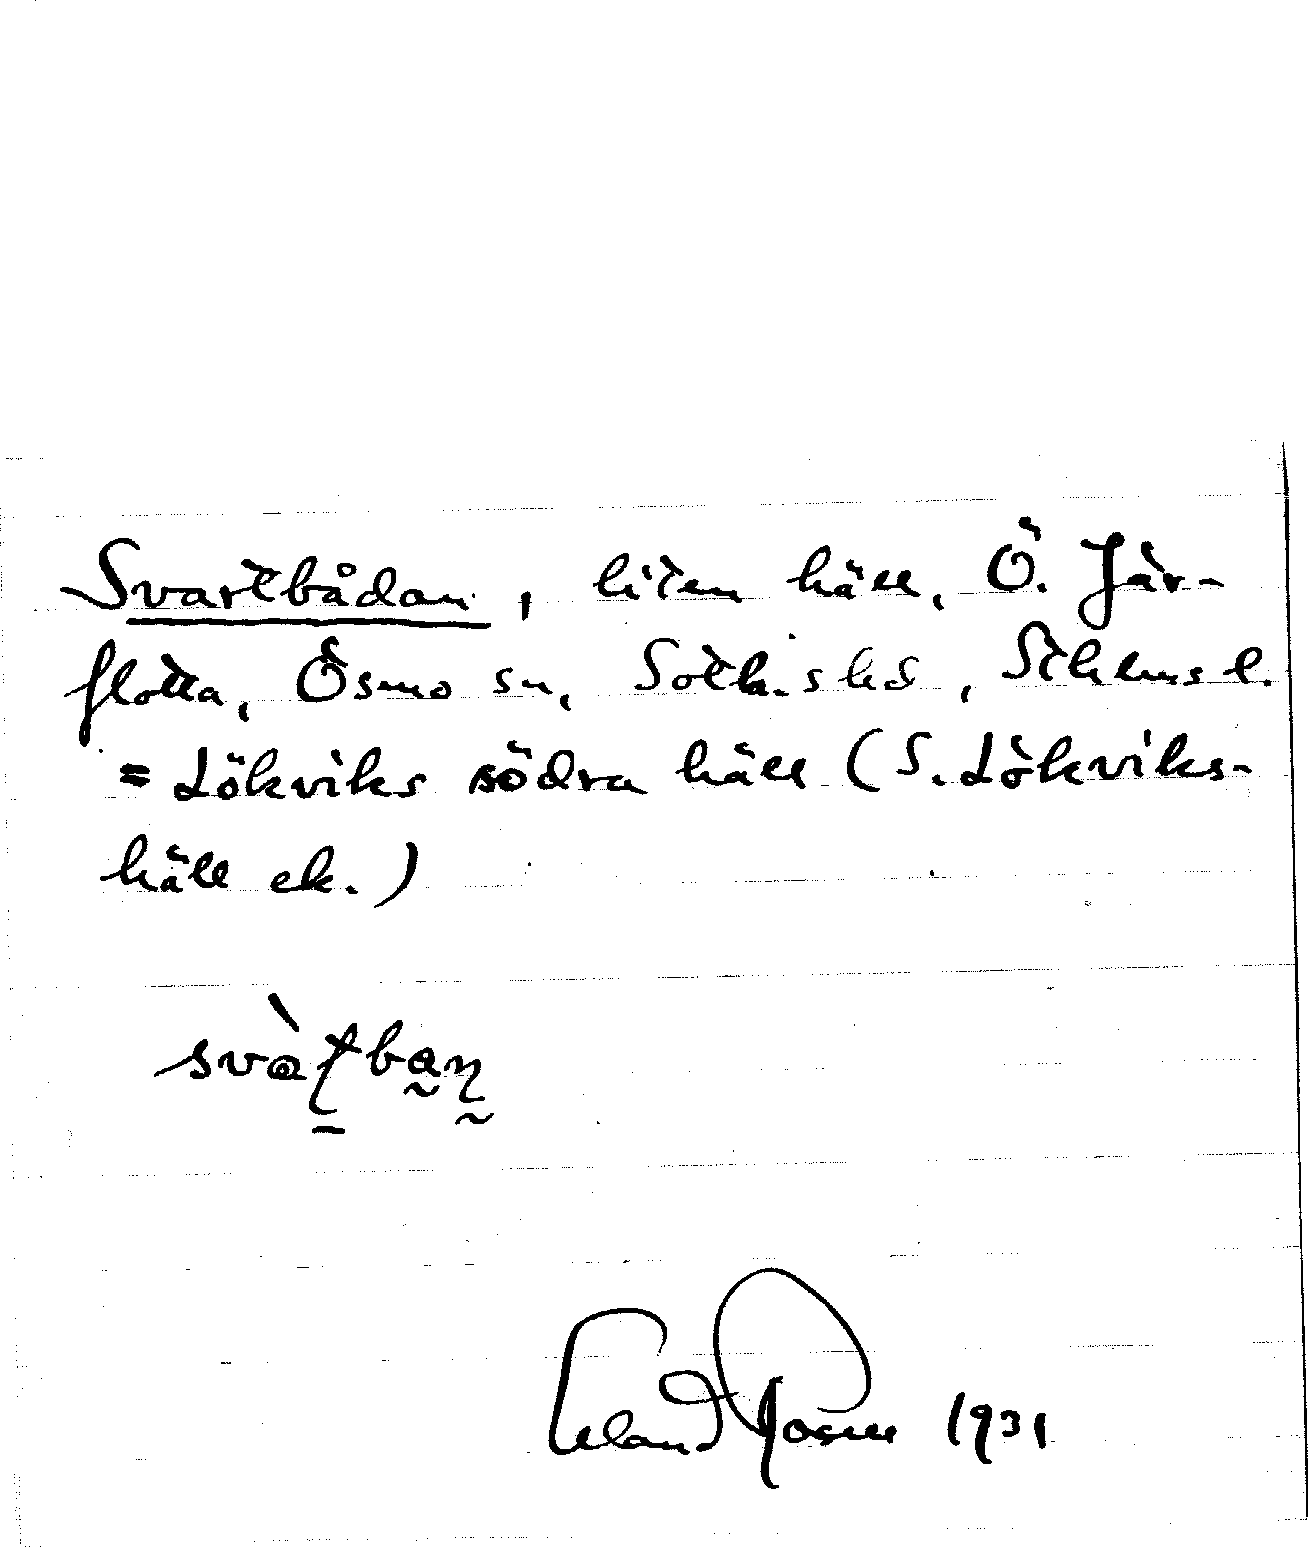 Svartbådan, liten häll, Ö. Jär-
flotta, Ösmo sn, Soth. skd, Sthlms l.
= Lökviks södra häll (S. Lökviks-
häll ek.)
svàtban
Erland Rosell 1931